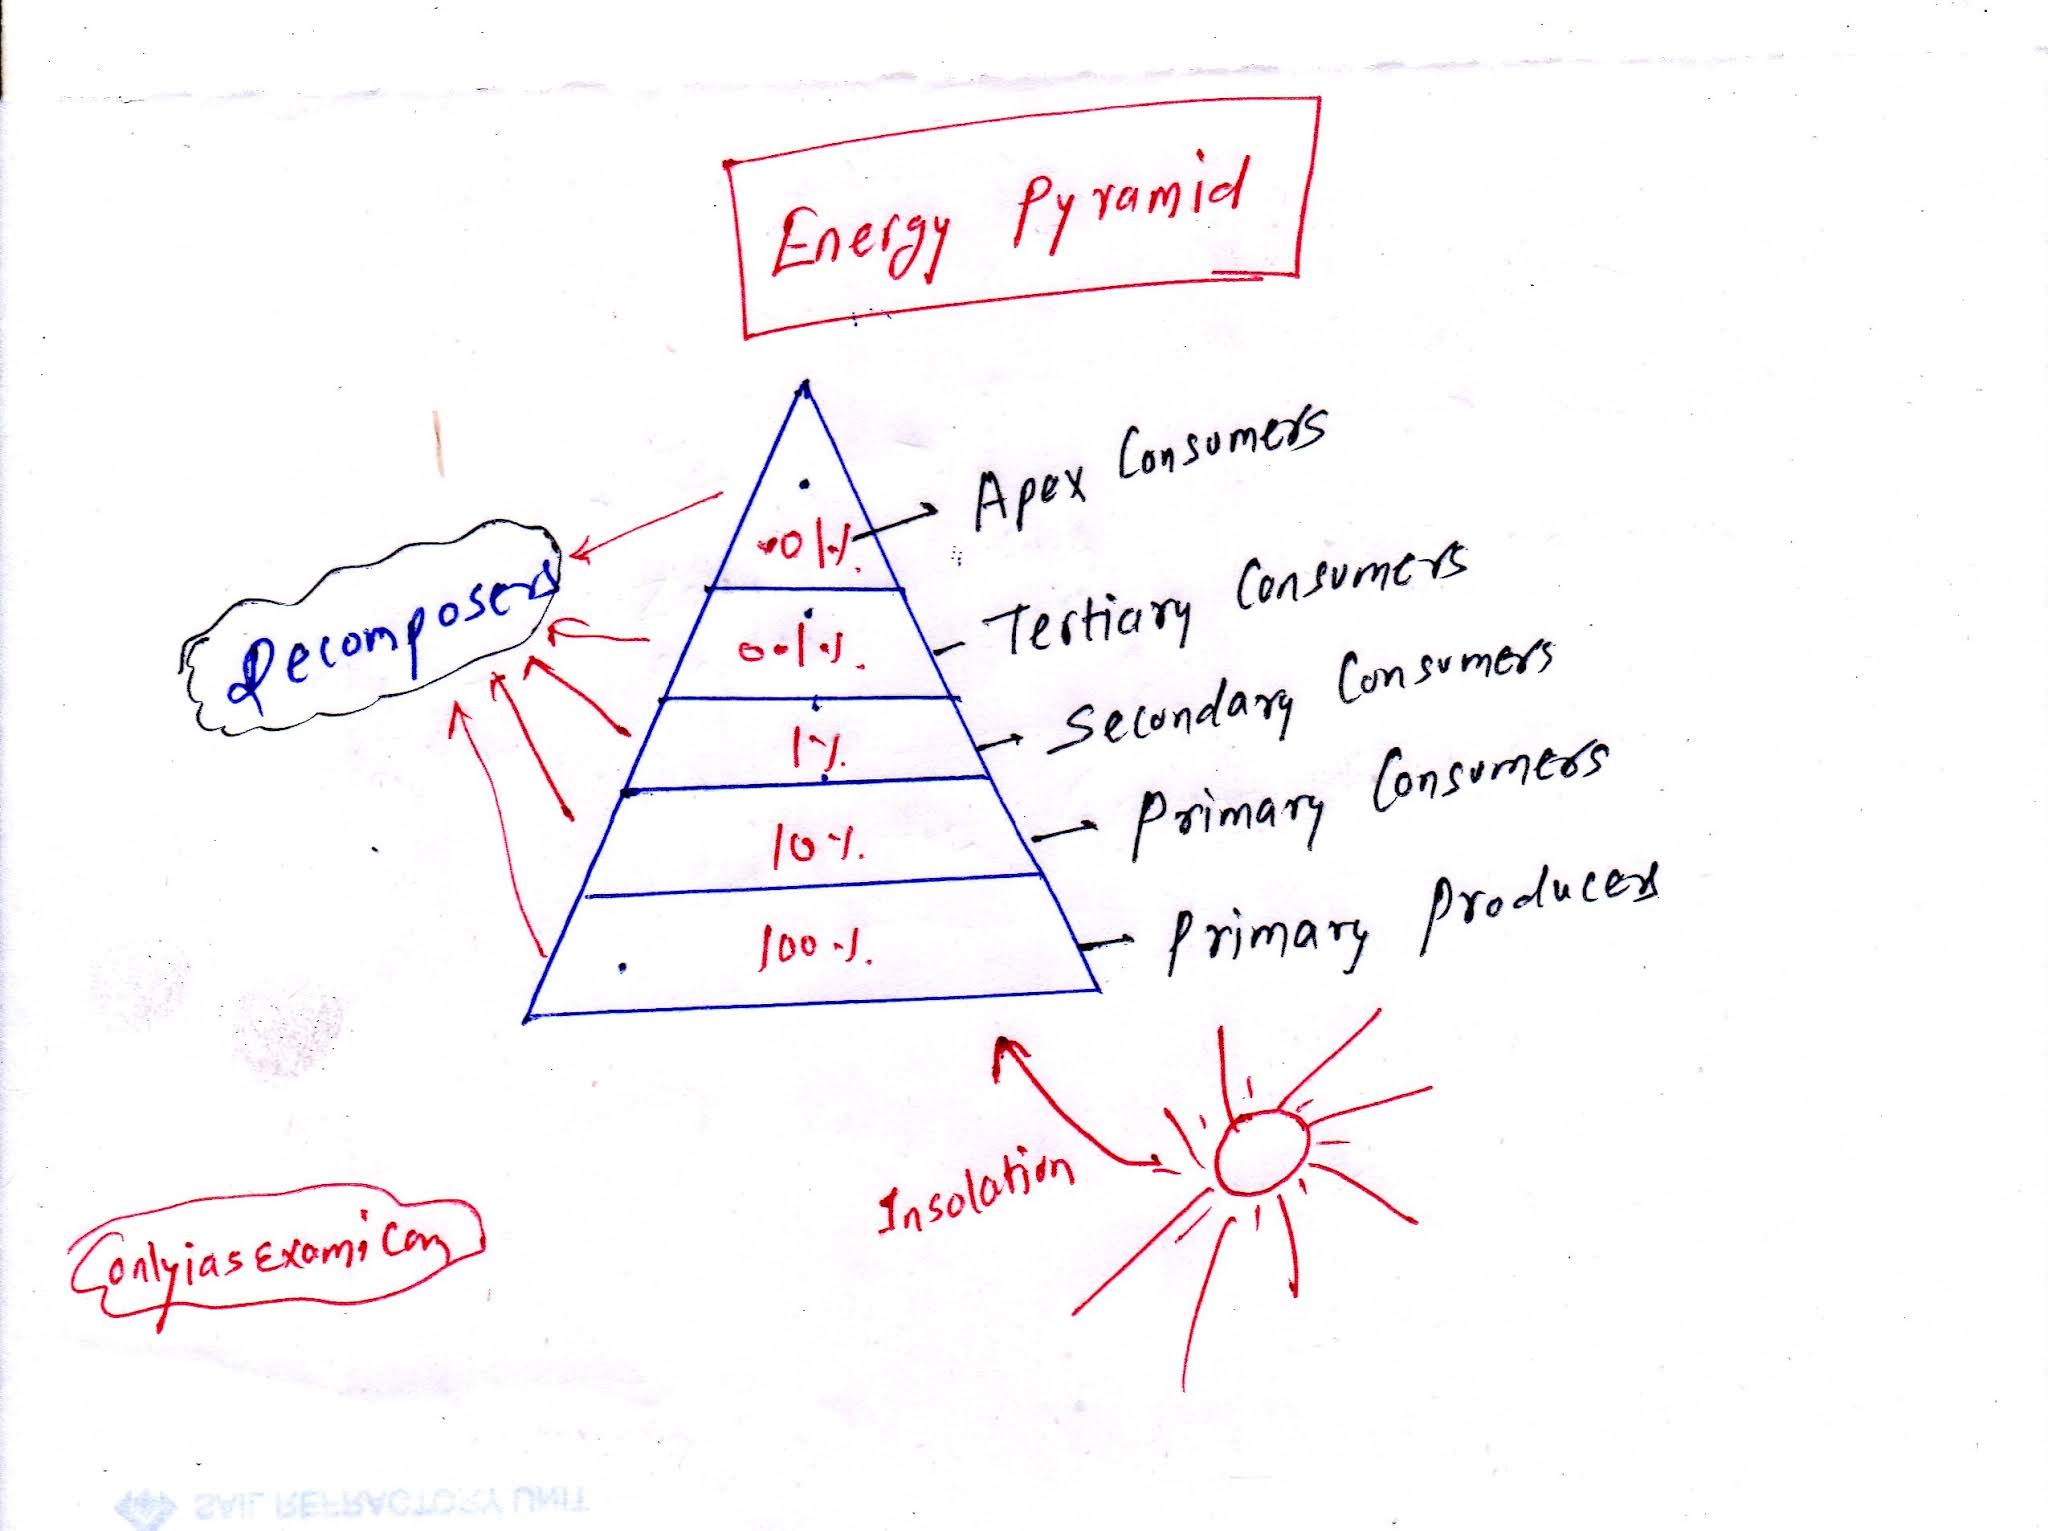 Energy Pyramid
.01%.
Apex Consumers
0.1%.
Tertiary Consumers
1%.
Secondary Consumers
10%.
Primary Consumers
100%.
Primary Producers
Decomposers
Insolation
onlyiasExam.Com
SAIL REFRACTORY UNIT